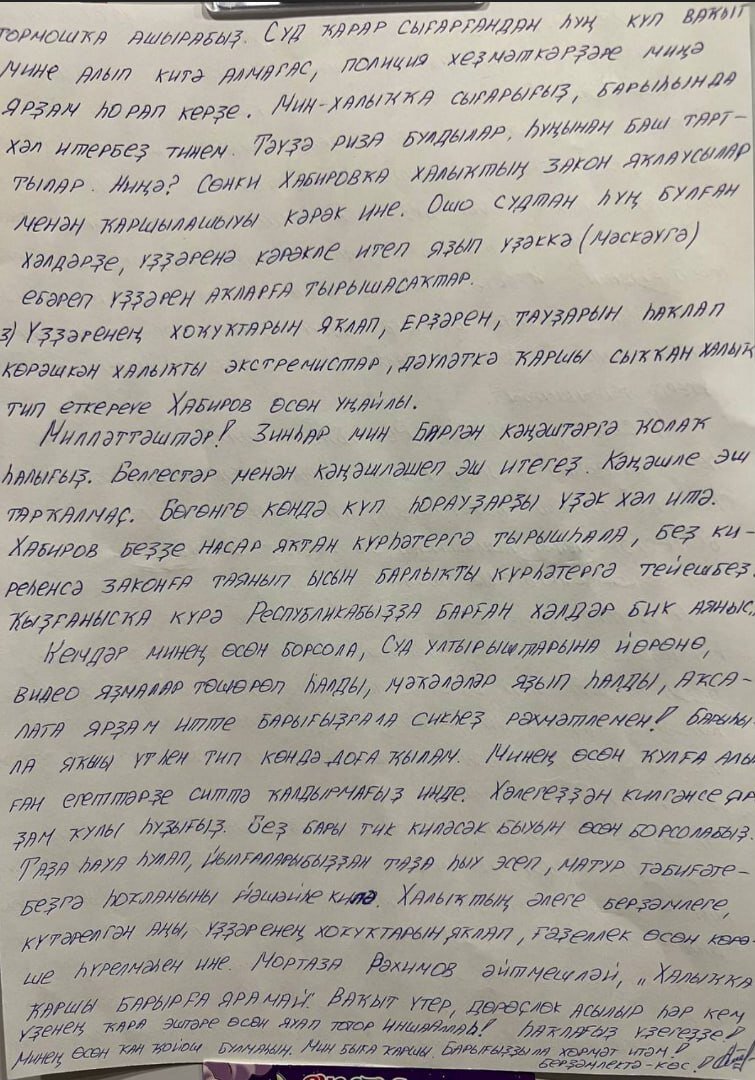 тормошҡа ашырабыҙ. Суд ҡарар сығарғандан һуң күп ваҡыт
мине алып китә алмағас, полиция хеҙмәткәрҙәре миңә
ярҙам һорап керҙе. Мин-халыҡҡа сығарығыҙ, барыһында
хәл итербеҙ тинем. Тәүҙә риза булдылар, һуңынан баш тарт-
тылар. Ниңә? Сөнки Хабировҡа халыҡтың закон яҡлаусылар
менән ҡаршылашыуы кәрәк ине. Ошо судтан һуң булған
хәлдәрҙе, үҙҙәренә кәрәкле итеп яҙып үҙәккә (Мәскәүгә)
ебәреп үҙҙәрен аҡларға тырышасаҡтар.
3) Үҙҙәренең хоҡуҡтарын яҡлап, ерҙәрен, тауҙарын һаҡлап
көрәшкән халыҡты экстремистар, дәүләткә ҡаршы сыҡҡан халыҡ
тип еткереү Хабиров өсөн уңайлы.
Милләттәштәр! Зинһар мин биргән кәңәштәргә ҡолаҡ
һалығыҙ. Белгестәр менән кәңәшләшеп эш итегеҙ. Кәңәшле эш
тарҡалмаҫ. Бөгөнгө көндә күп һорауҙарҙы үҙәк хәл итә.
Хабиров беҙҙе насар яҡтан күрһәтергә тырышһала, беҙ ки-
реһенсә законға таянып ысын барлыҡты күрһәтергә тейешбеҙ.
Ҡыҙғанысҡа күрә Республикабыҙҙа барған хәлдәр бик аяныс.
Кемдәр минең өсөн борсола, Суд ултырыштарына йөрөнө,
видео яҙмалар төшөрөп һалды, мәҡәләләр яҙып һалды, аҡса-
лата ярҙам итте барығыҙғала сикһеҙ рәхмәтлемен! Барыһы-
ла яҡшы үтһен тип көндә доға ҡылам. Минең өсөн ҡулға алы
ған егеттәрҙе ситтә ҡалдырмағыҙ инде. Хәлегеҙҙән килгәнсе яр
ҙам ҡулы һуҙығыҙ. Беҙ бары тик киләсәк быуын өсөн борсолабыҙ.
Таҙа һауа һулап, йылғаларыбыҙҙан таҙа һыу эсеп, матур тәбиғәте-
беҙгә һоҡланыны йәшәйһе килә. Халыҡтың әлеге берҙәмлеге,
күтәрелгән аңы, үҙҙәренең хоҡуҡтарын яҡлап, ғәҙеллек өсөн көрә-
ше һүрелмәһен ине. Мортаза Рәхимов әйтмешләй, „Халыҡҡа
ҡаршы барырға ярамай". Ваҡыт үтер, дөрөҫлөк асылыр һәр кем
үҙенең ҡара эштәре өсөн яуап тотор Иншаллаһ! Һаҡлағыҙ үҙегеҙҙе!
Минең өсөн ҡан ҡойош булмаһын. Мин быға ҡаршы. Барығыҙҙы ла хөрмәт итәм!
Берҙәмлектә-көс!